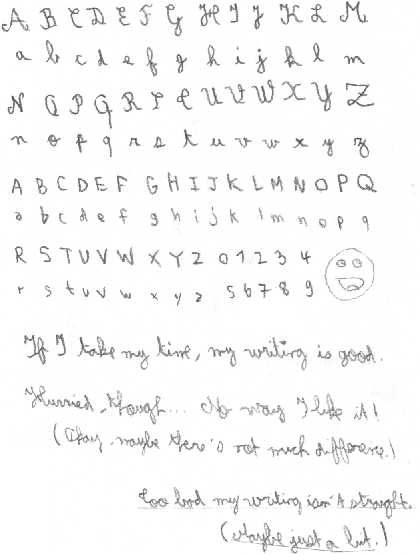 A B C D E F G H I J K L M
a b c d e f g h i j k l m
N O P Q R S T U V W X Y Z
n o p q r s t u v w x y z
A B C D E F G H I J K L M N O P Q
a b c d e f g h i j k l m n o p q
R S T U V W X Y Z 0 1 2 3 4
r s t u v w x y z 5 6 7 8 9
If I take my time, my writing is good.
Hurried, though... No way I like it!
(Okay, maybe there's not much difference.)
Too bad my writing isn't straight.
(Maybe just a bit.)